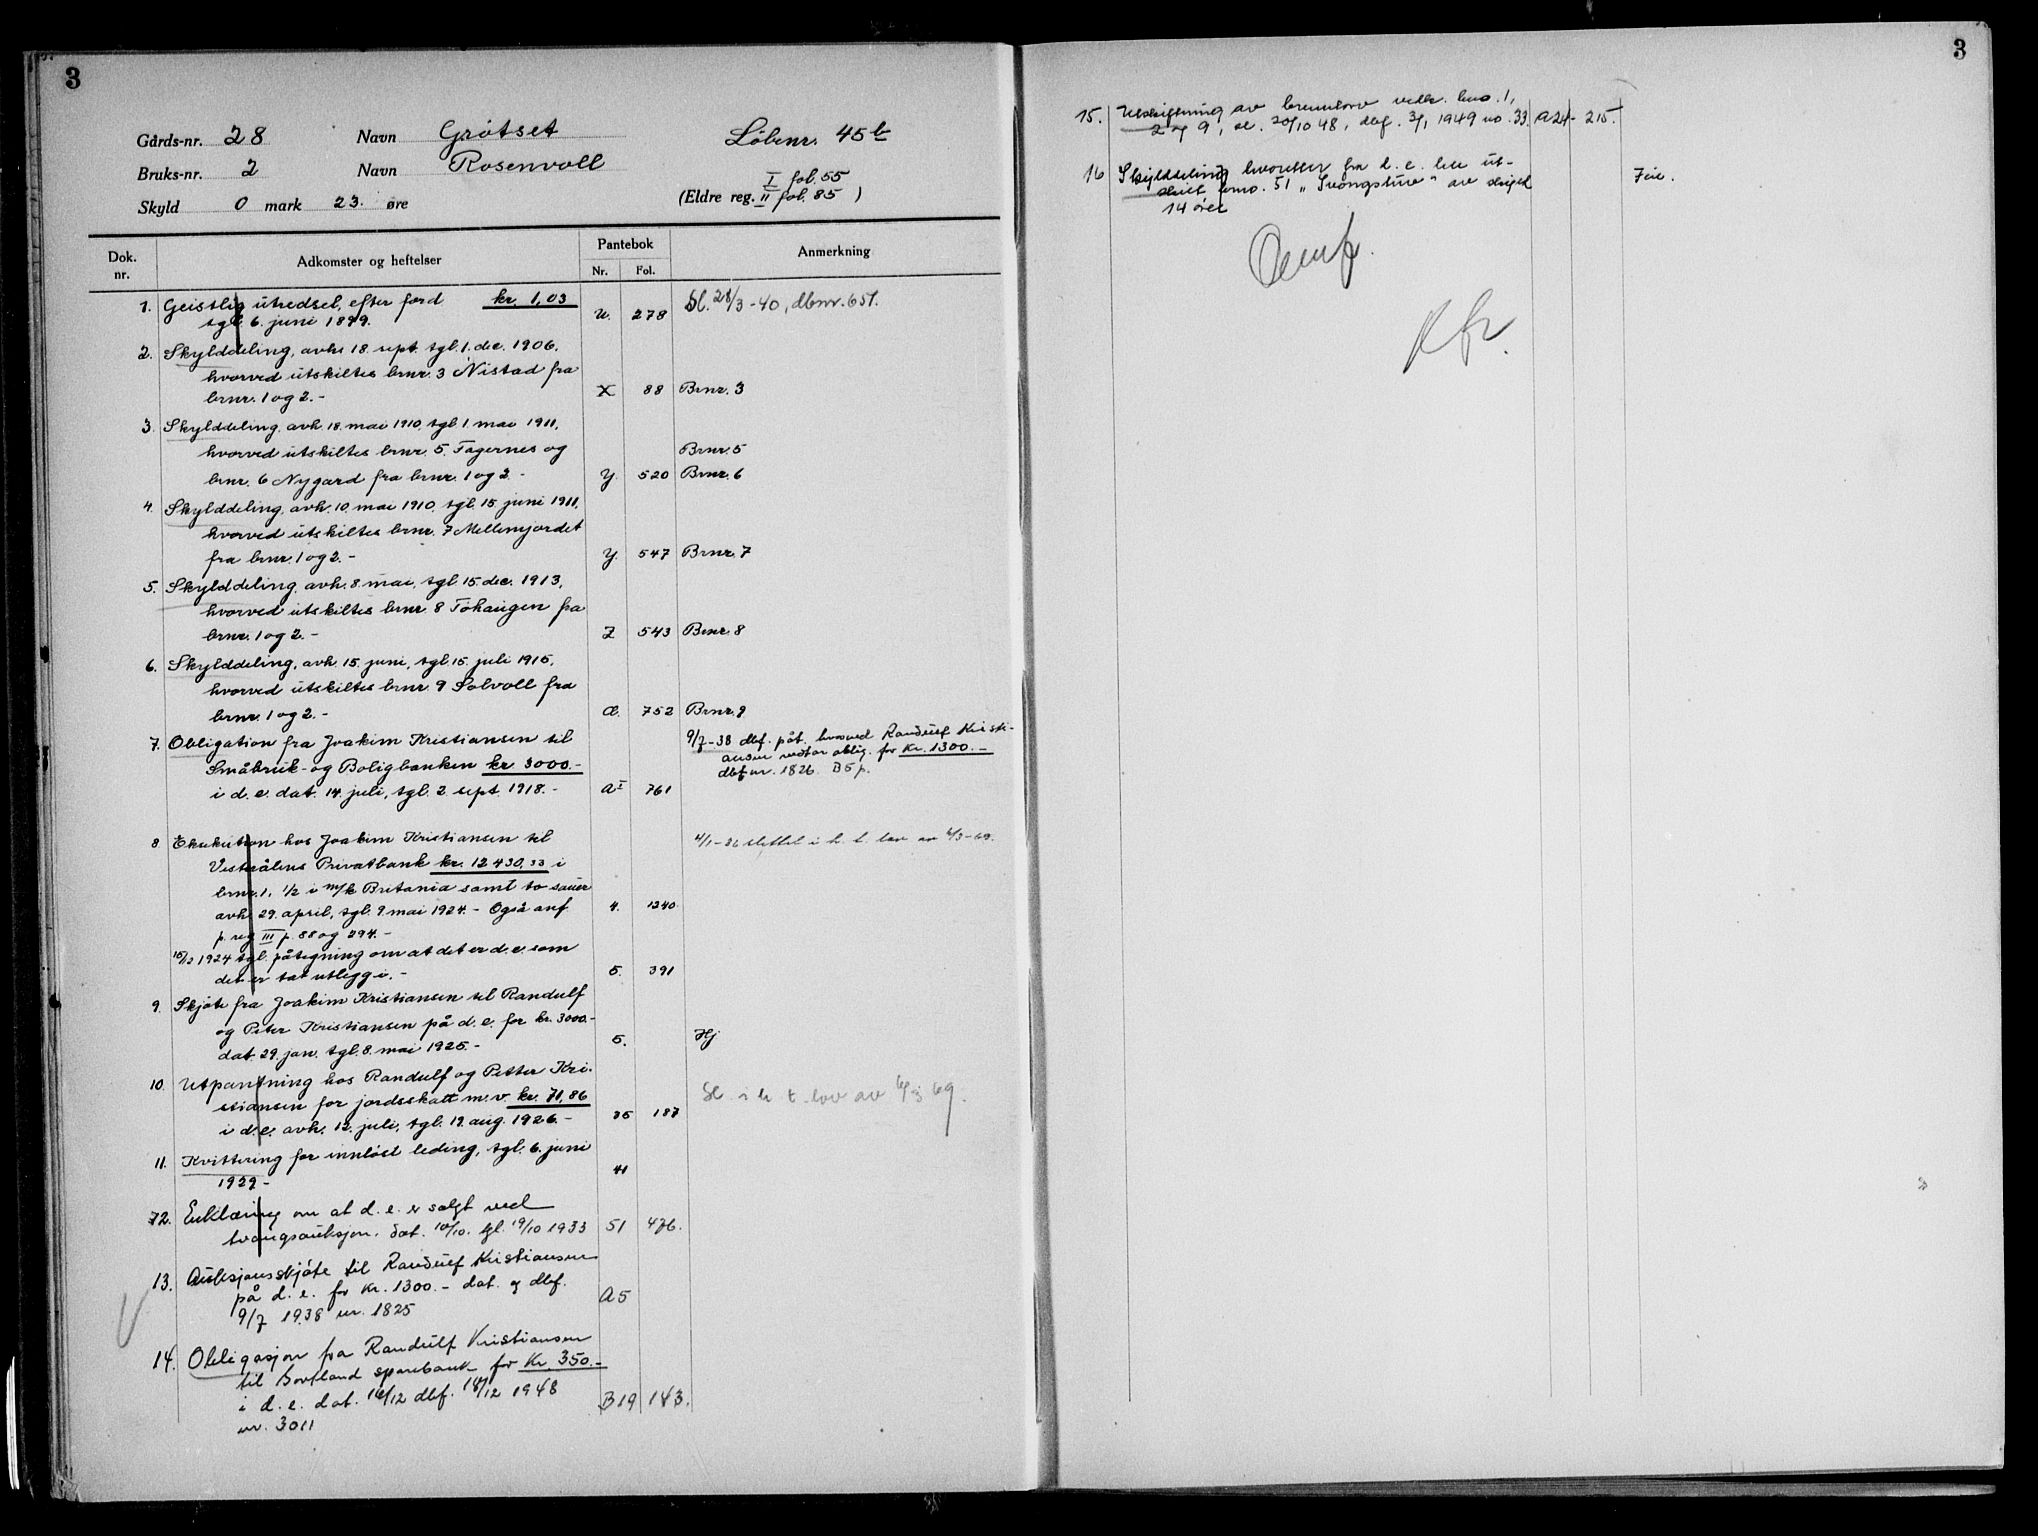 3
Gårds-nr. 28 Navn Grötset Löbenr. 45b
Bruks-nr. 2 Navn Rosenvoll
I fol. 55
Skyld 0 mark 23 øre (Eldre reg. II fol. 85 )
Dok. nr. Adkomster og heftelser Pantebok Nr. Fol. Anmerkning
1. Geistlig utredsel, efter ford kr. 1,03
tgl. 6. juni 1899. U. 278 Sl. 28/3-40, dbnr. 651.
2. Skylddeling, avh. 18. sept. tgl. 1. de. 1906,
hvorved utskiltes brnr. 3 Nistad fra
brnr. 1 og 2.- X 88 Brnr. 3
3. Skylddeling, avh. 18. mai 1910, tgl. 1. mai 1911,
hvorved utskiltes brnr. 5. Fagernes og Brnr. 5
brnr. 6 Nygård fra brnr. 1 og 2.- Y. 520 Brnr. 6
4. Skylddeling, avh. 10. mai 1910, tgl. 15. juni 1911,
hvorved utskiltes brnr. 7 Mellemjordet
fra brnr. 1 og 2.- Y. 547 Brnr. 7
5. Skylddeling, avh. 8. mai, tgl. 15. dec. 1913,
hvorved utskiltes brnr. 8 Tohaugen fra
brnr. 1 og 2.- Z 543 Brnr. 8
6. Skylddeling, avh. 15. juni, tgl. 15. juli 1915,
hvorved utskiltes brnr. 9 Solvoll fra
brnr. 1 og 2.- Æ. 752 Brnr. 9
7. Obligation fra Joakim Kristiansen til
Småbruk- og Boligbanken kr. 3000.-
i d. e. dat. 14. juli, tgl. 2. sept. 1918.- A I 761
9/7-38 dbf. påt. hvorved Randulf Kristi-
ansen vedtar oblig. for Kr. 1300.-
dbf nr. 1826 B 5 p.
8 Eksekution hos Joakim Kristiansen til
Vesterålens Privatbank kr. 12 430,33 i
brnr. 1, 1/2 i m/k Britania samt to sauer
avh. 29. april, tgl. 9. mai 1924.- Også anf 4. 1240
p. reg III p. 88 og 294.-
15/12 1924 tgl. påtegning om at det er d. e. som
det er tat utlegg i.- 5. 391
4/1-86 slettet i h. t. lov av 6/3-69.
9. Skjöte fra Joakim Kristiansen til Randulf
og Peter Kristiansen på d. e. for kr. 3000.-
dat. 29. jan. tgl. 8. mai 1925.- 5. Hj
10. Utpantning hos Randulf og Petter Kri-
stiansen for jordsskatt m. v. kr. 71,86
i d. e. avh. 12. juli, tgl. 19. aug. 1926.- 35 187
Sl i h t lov av 6/3 69.
11. Kvittering for innlöst leding, tgl. 6. juni
1929.- 41
12. Erklæring om at d. e. er solgt ved
tvangsauksjon. Dat. 10/10. tgl. 19/10 1933 51 476.
13. Auksjonsskjöte til Randulf Kristiansen
på d. e. for Kr. 1300.- dat. og dbf.
9/7 1938 nr. 1825 A 5
14. Obligasjon fra Randulf Kristiansen
til Hortland sparebank for Kr. 350.-
i d. e. dat. 16/12 dbf. 18/12 1948 B 19 143.
nr. 3011
3
15. Utskiftning av brenntorv vedk. bno. 1,
2 og 9, sl. 20/10 48, dbf. 3/1 1949 no. 33. A24- 215.
16 Skylddeling hvoretter fra d. e. ble ut-
skilt bno. 51 av skyld
14 öre